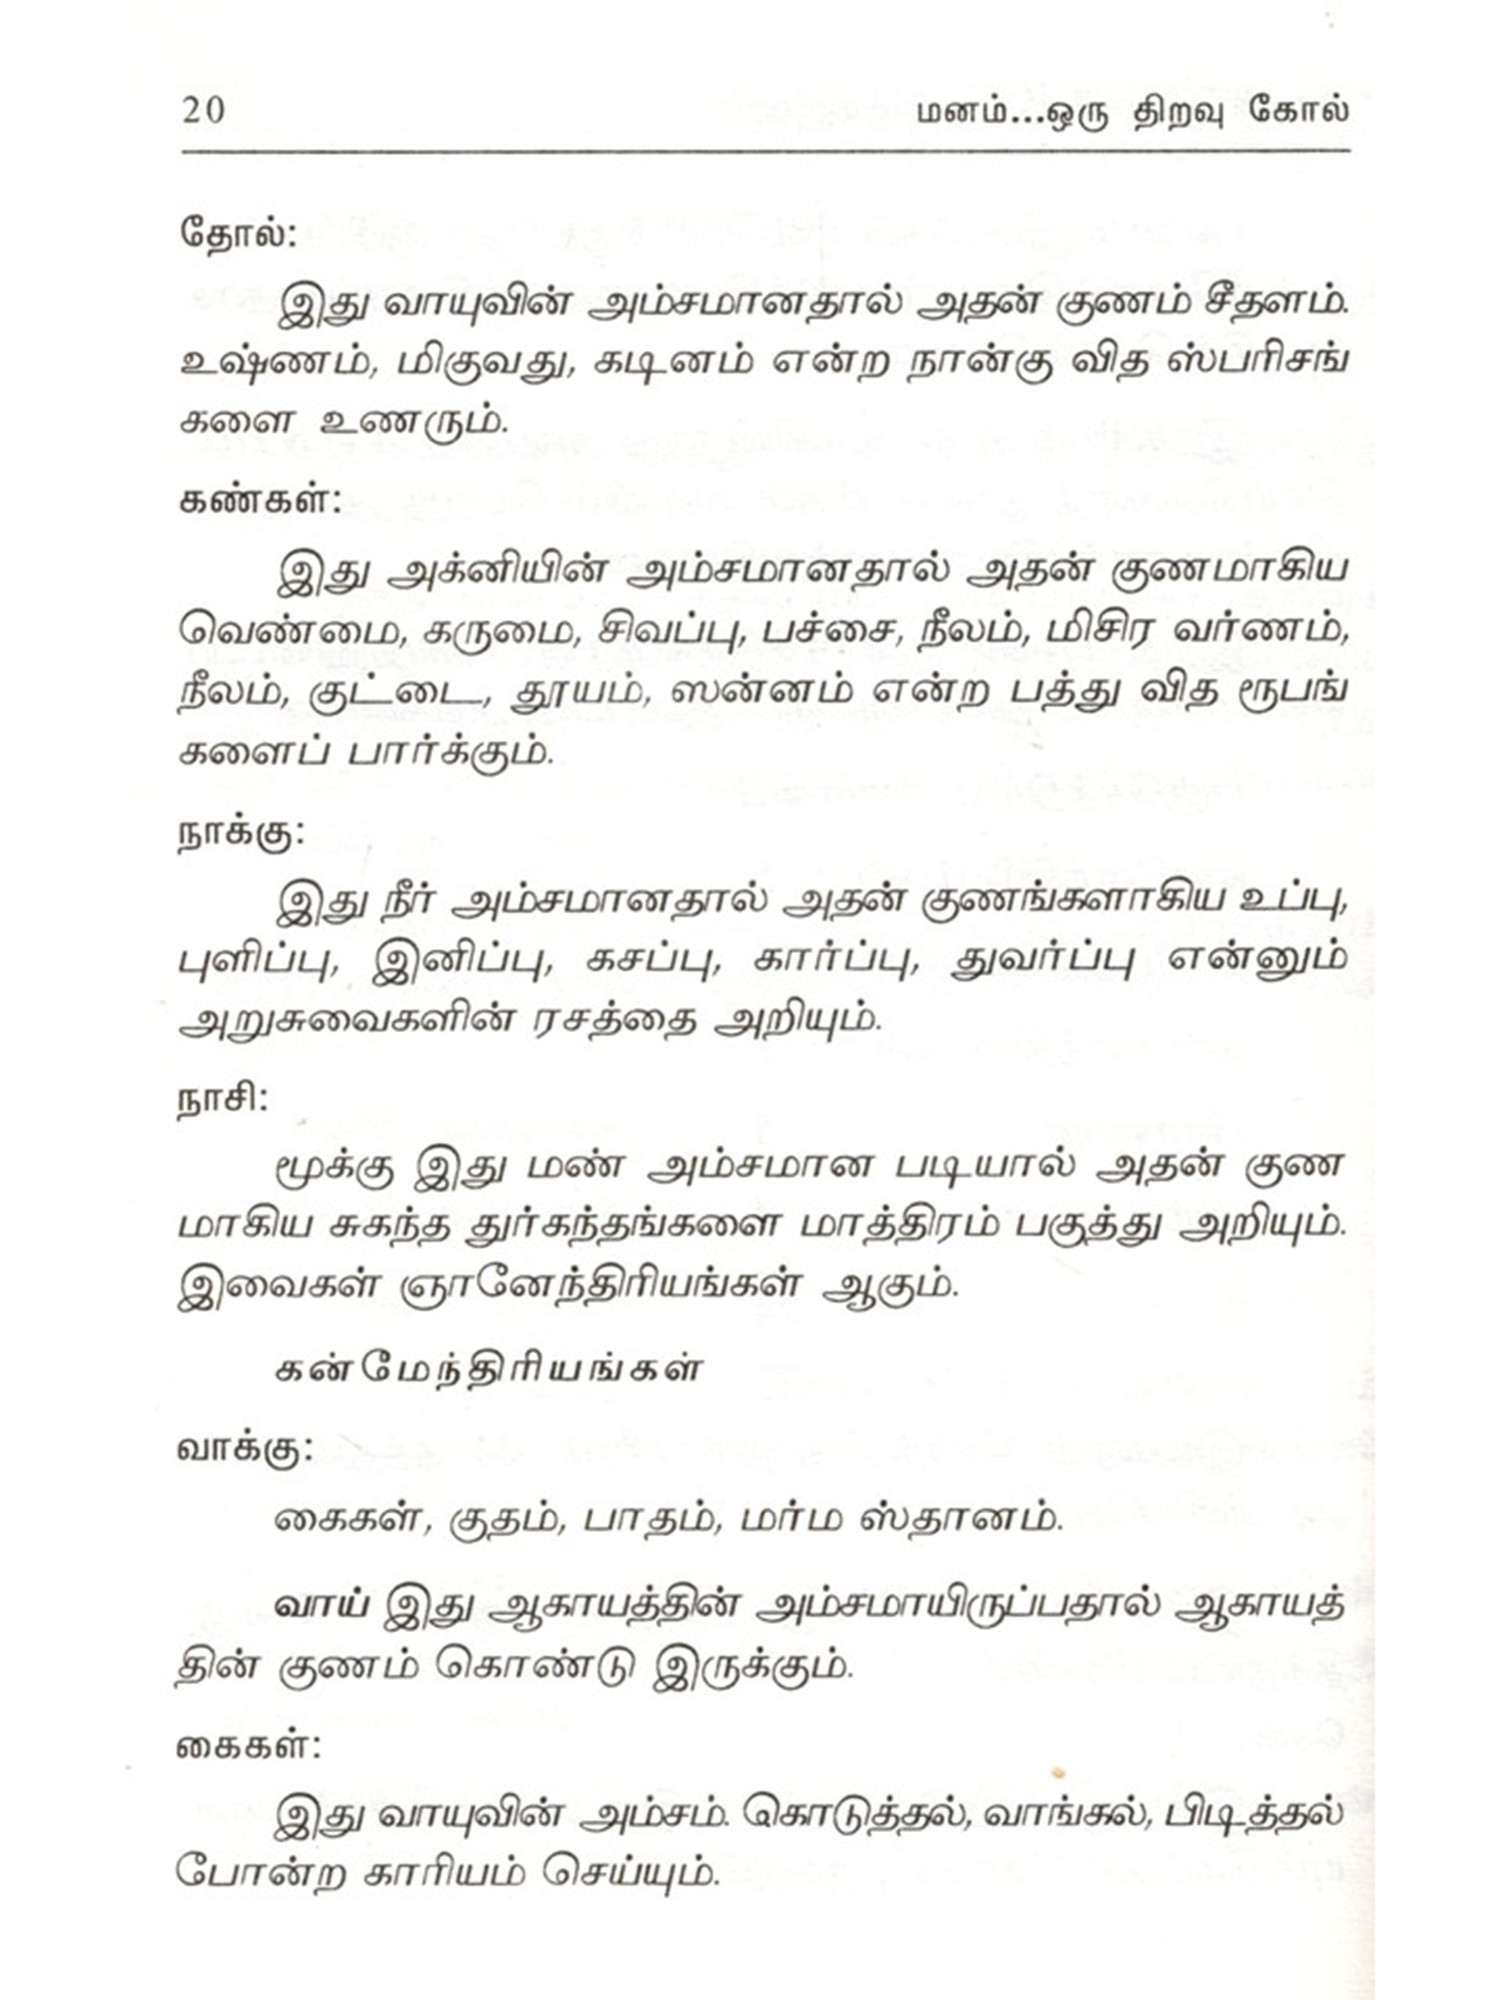 20 மனம்...ஒரு திறவு கோல்
தோல்:
இது வாயுவின் அம்சமானதால் அதன் குணம் சீதளம்.
உஷ்ணம், மிகுவது, கடினம் என்ற நான்கு வித ஸ்பரிசங்
களை உணரும்.
கண்கள்:
இது அக்னியின் அம்சமானதால் அதன் குணமாகிய
வெண்மை, கருமை, சிவப்பு, பச்சை, நீலம், மிசிர வர்ணம்,
நீலம், குட்டை, தூயம், ஸன்னம் என்ற பத்து வித ரூபங்
களைப் பார்க்கும்.
நாக்கு:
இது நீர் அம்சமானதால் அதன் குணங்களாகிய உப்பு,
புளிப்பு, இனிப்பு, கசப்பு, கார்ப்பு, துவர்ப்பு என்னும்
அறுசுவைகளின் ரசத்தை அறியும்.
நாசி:
மூக்கு இது மண் அம்சமான படியால் அதன் குண
மாகிய சுகந்த துர்கந்தங்களை மாத்திரம் பகுத்து அறியும்.
இவைகள் ஞானேந்திரியங்கள் ஆகும்.
கன்மேந்திரியங்கள்
வாக்கு:
கைகள், குதம், பாதம், மர்ம ஸ்தானம்.
வாய் இது ஆகாயத்தின் அம்சமாயிருப்பதால் ஆகாயத்
தின் குணம் கொண்டு இருக்கும்.
கைகள்:
இது வாயுவின் அம்சம். கொடுத்தல், வாங்கல், பிடித்தல்
போன்ற காரியம் செய்யும்.